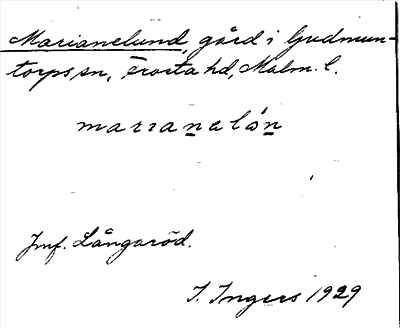 Marianelund, gård i Gudmun-
torps sn, Frosta hd, Malm. l.
marianelón
Jmf. Långaröd.
I. Ingers 1929